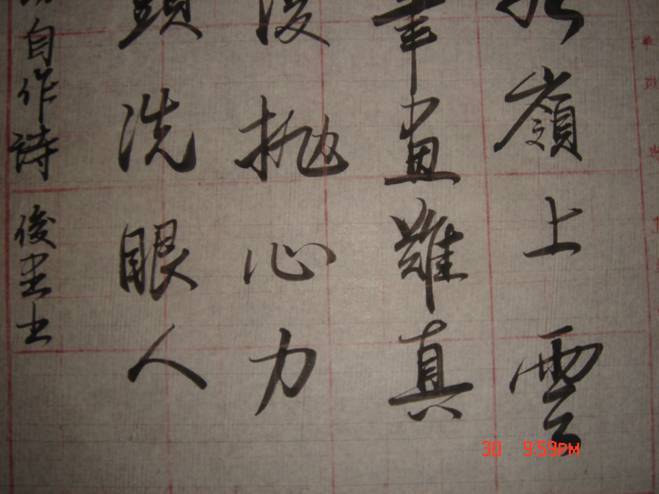 嶺上雲
筆畫難真
後拋心力
頭洗眼人
自作詩 俊生書
30 9:59PM